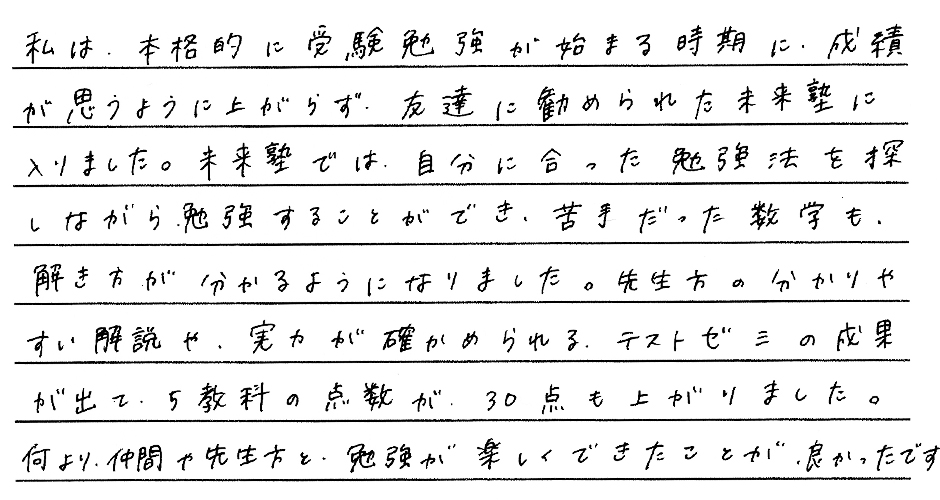 私は、本格的に受験勉強が始まる時期に、成績
が思うように上がらず、友達に勧められた未来塾に
入りました。未来塾では、自分に合った勉強法を探
しながら、勉強することができ、苦手だった数学も、
解き方が分かるようになりました。先生方の分かりや
すい解説や、実力が確かめられる、テストゼミの成果
が出て、5教科の点数が、30点も上がりました。
何より、仲間や先生方と、勉強が楽しくできたことが、良かったです